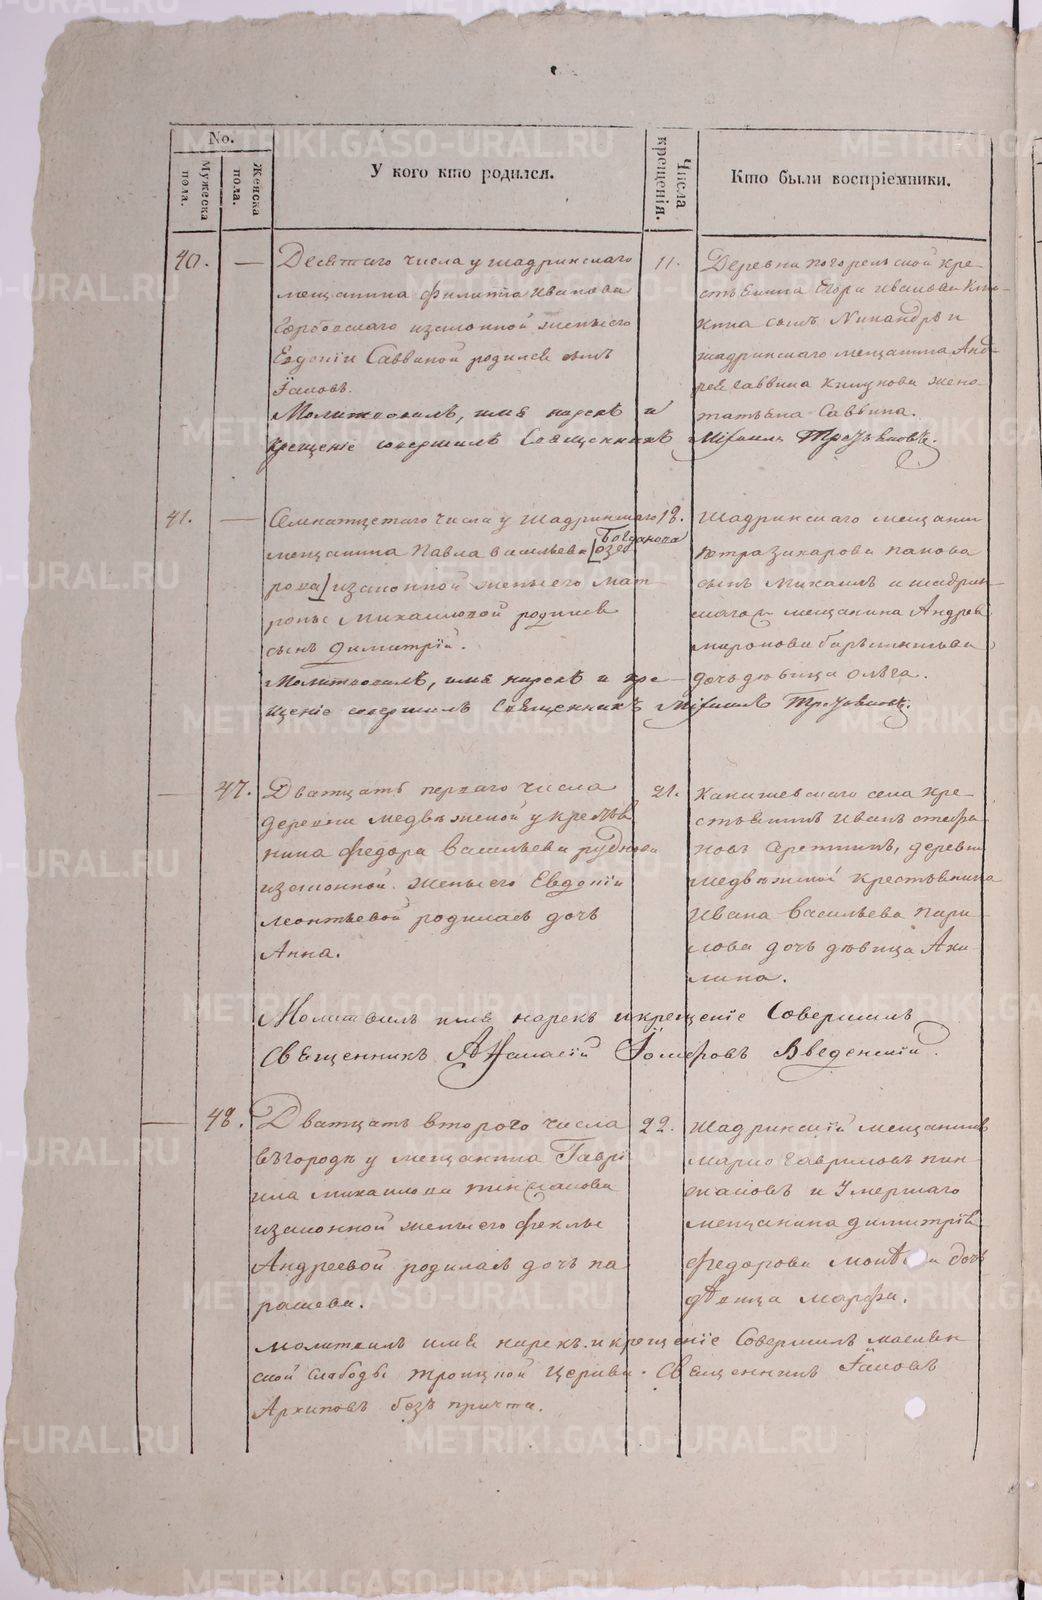 No.
Мужеска пола.
Женска пола.
У кого кто родился.
Числа крещенія.
Кто были воспріемники.
40. —
Десятаго числа у шадринскаго
мещанина Филиппа Иванова
изаконной жены его
Евдокіи Саввиной родился сынъ
Іаковъ.
Молитвовалъ, имя нарекъ и
крещеніе совершилъ Священникъ Михаилъ
11.
Деревни погорельской кре-
стьянина Егора Иванова
сынъ Никандръ и
шадринскаго мещанина Анд-
рея Саввина жена
татьяна Саввина.
41. —
Семнатцетаго числа у Шадринскаго
мещанина Павла васильева Богданова
изаконной жены его Мат-
роны Михайловой родился
сынъ Димитрій.
Молитвовалъ, имя нарекъ и кре-
щеніе совершилъ Священникъ Михаилъ
18.
Шадринскаго мещанина
петра захарова попова
сынъ Михаилъ и шадрин-
скагожъ мещанина Андрея
миронова
дочь девица Ольга.
— 47.
Дватцать перваго числа
деревни медвѣжской у крестья-
нина Федора Васильева руднова
изаконной жены его Евдокіи
леонтьевой родилась дочь
Анна.
21.
Канашевскаго села кре-
стьянинъ Иванъ стефа-
новъ деревни
медвѣжской крестьянина
Ивана Васильева пари-
лова дочь дѣвица Аки-
лина.
Молитвилъ имя нарекъ и крещеніе Совершилъ
Священникъ Афанасій Введенскій.
— 48.
Дватцать втораго числа
въ городѣ у мещанина Гаврі-
ила михайлова пинжакова
изаконной жены его феклы
Андреевой родилась дочь па-
раскева.
22.
Шадринскій мещанинъ
марко Гавриловъ пин-
жаковъ и Умершаго
мещанина димитрія
Федорова дочь
дѣвица Марфа.
молитвилъ имя нарекъ и крещеніе Совершилъ маслян-
ской слабоды троицкой Церкви Священникъ Іаковъ
Архиповъ безъ причта.
METRIKI.GASO-URAL.RU